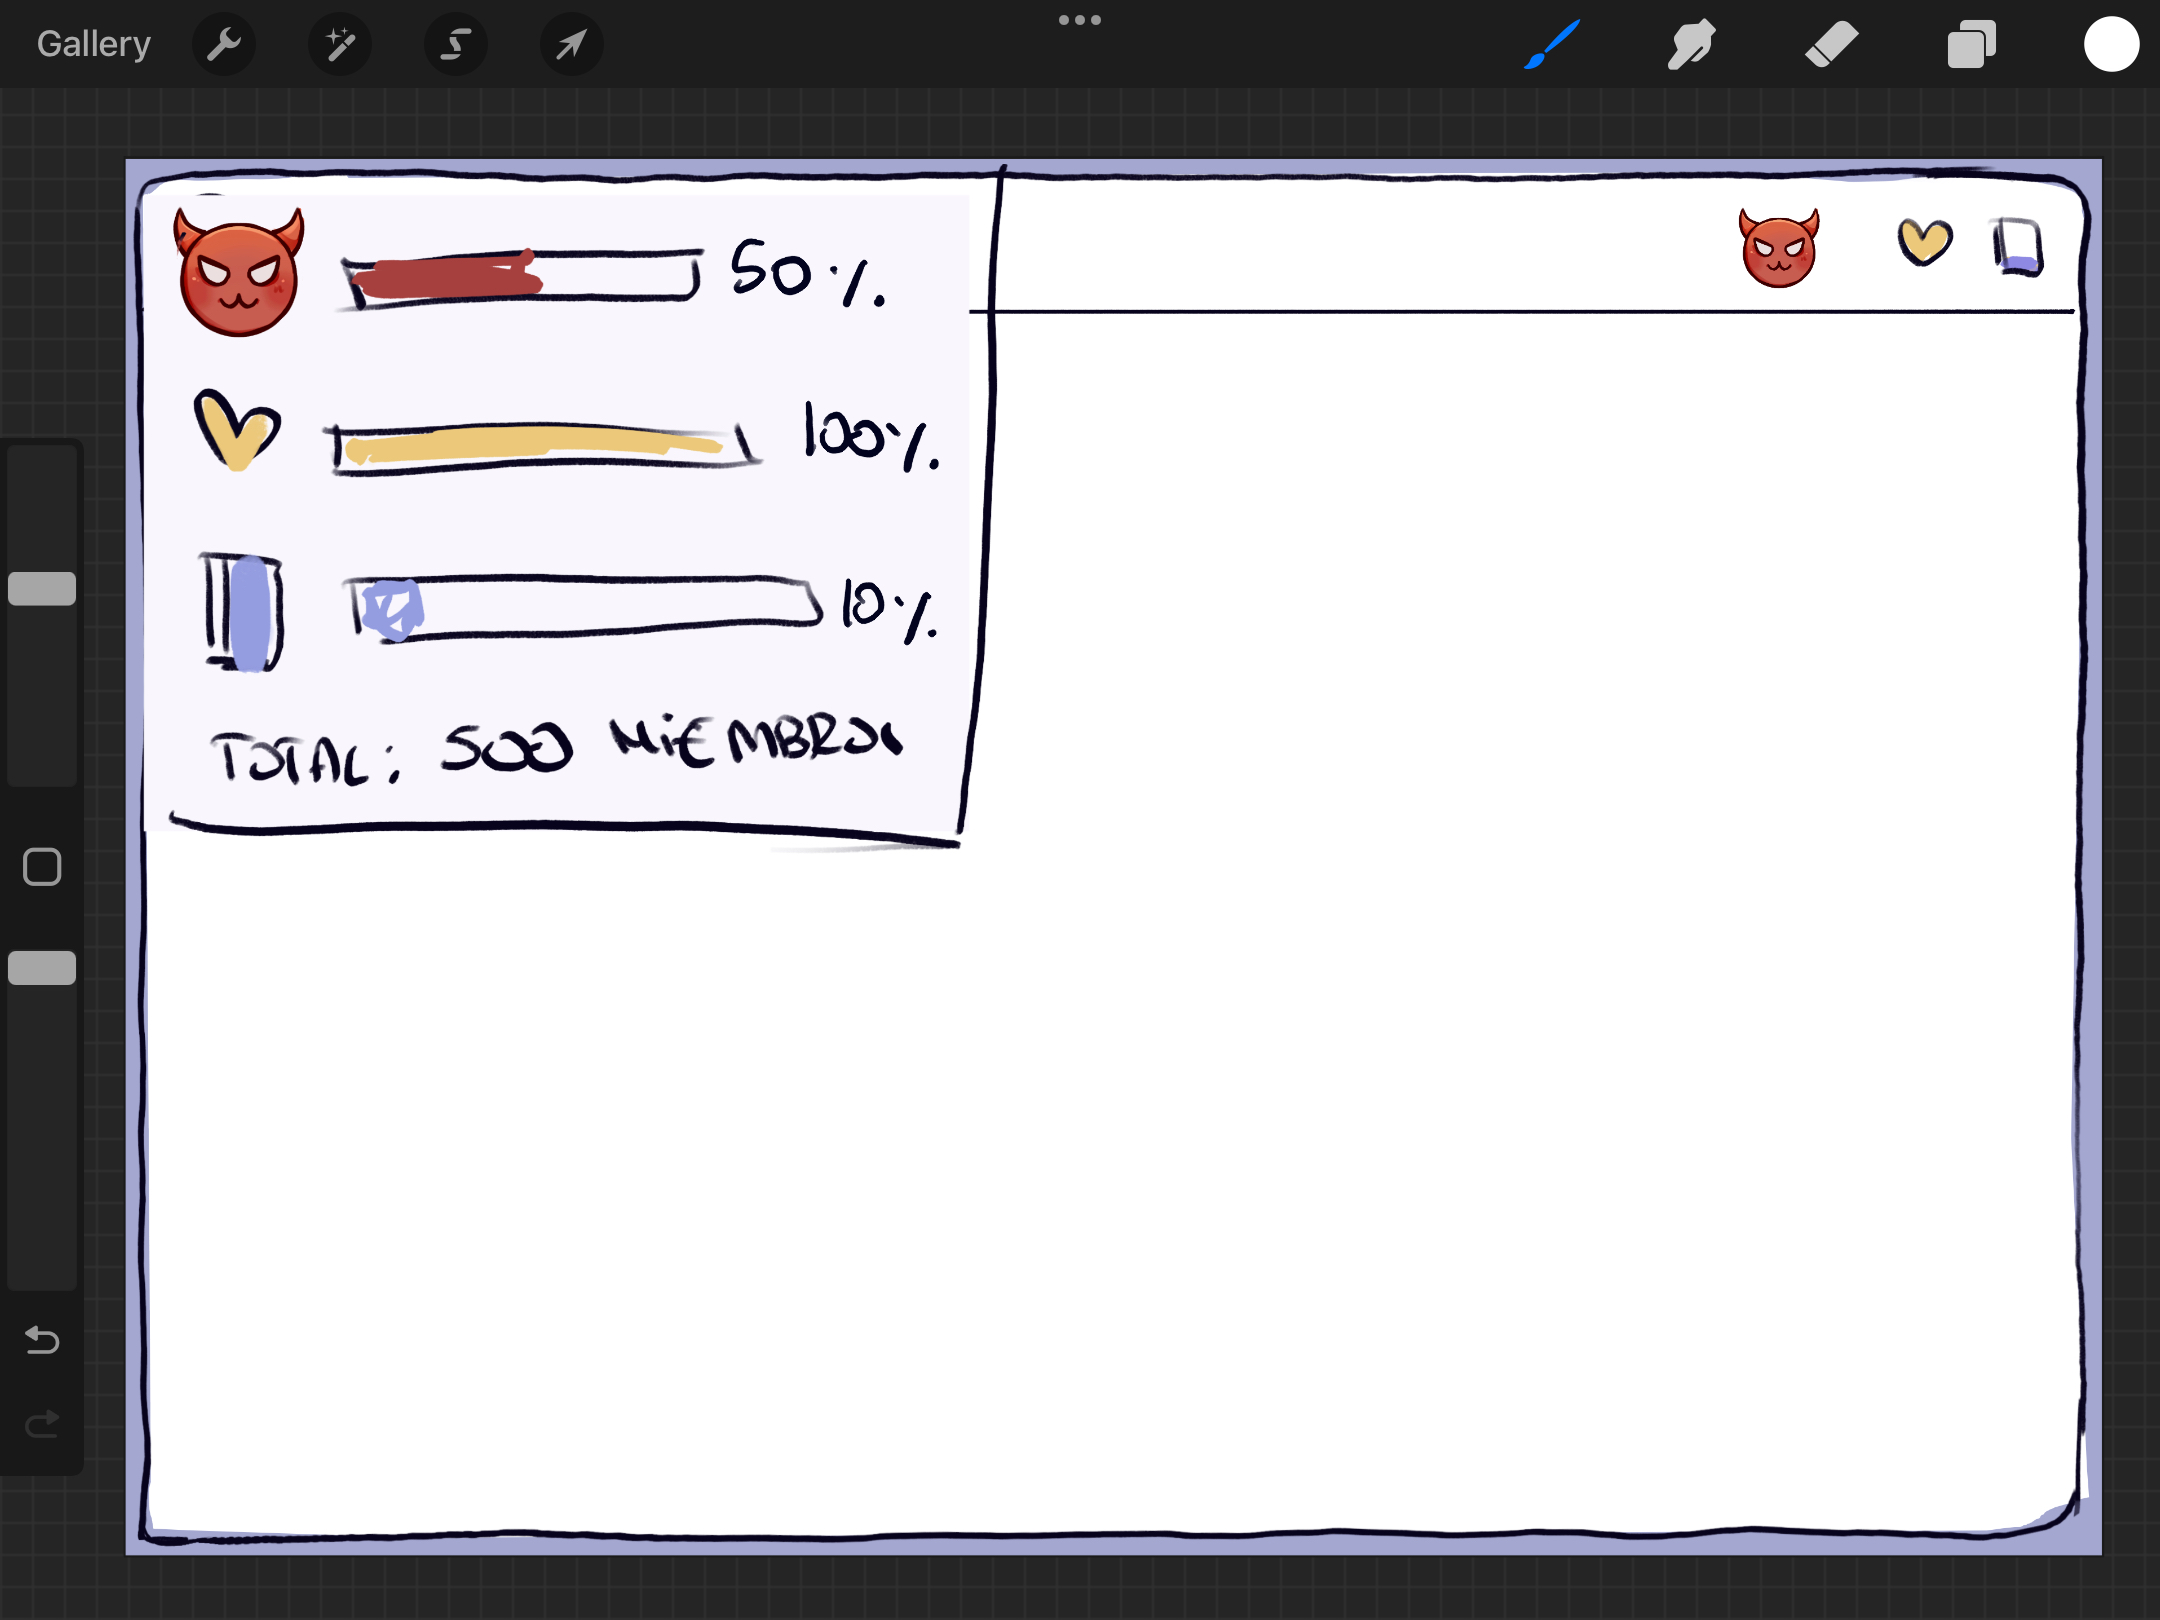 Gallery
50%
100%
10%
TOTAL: 500 MIEMBROS